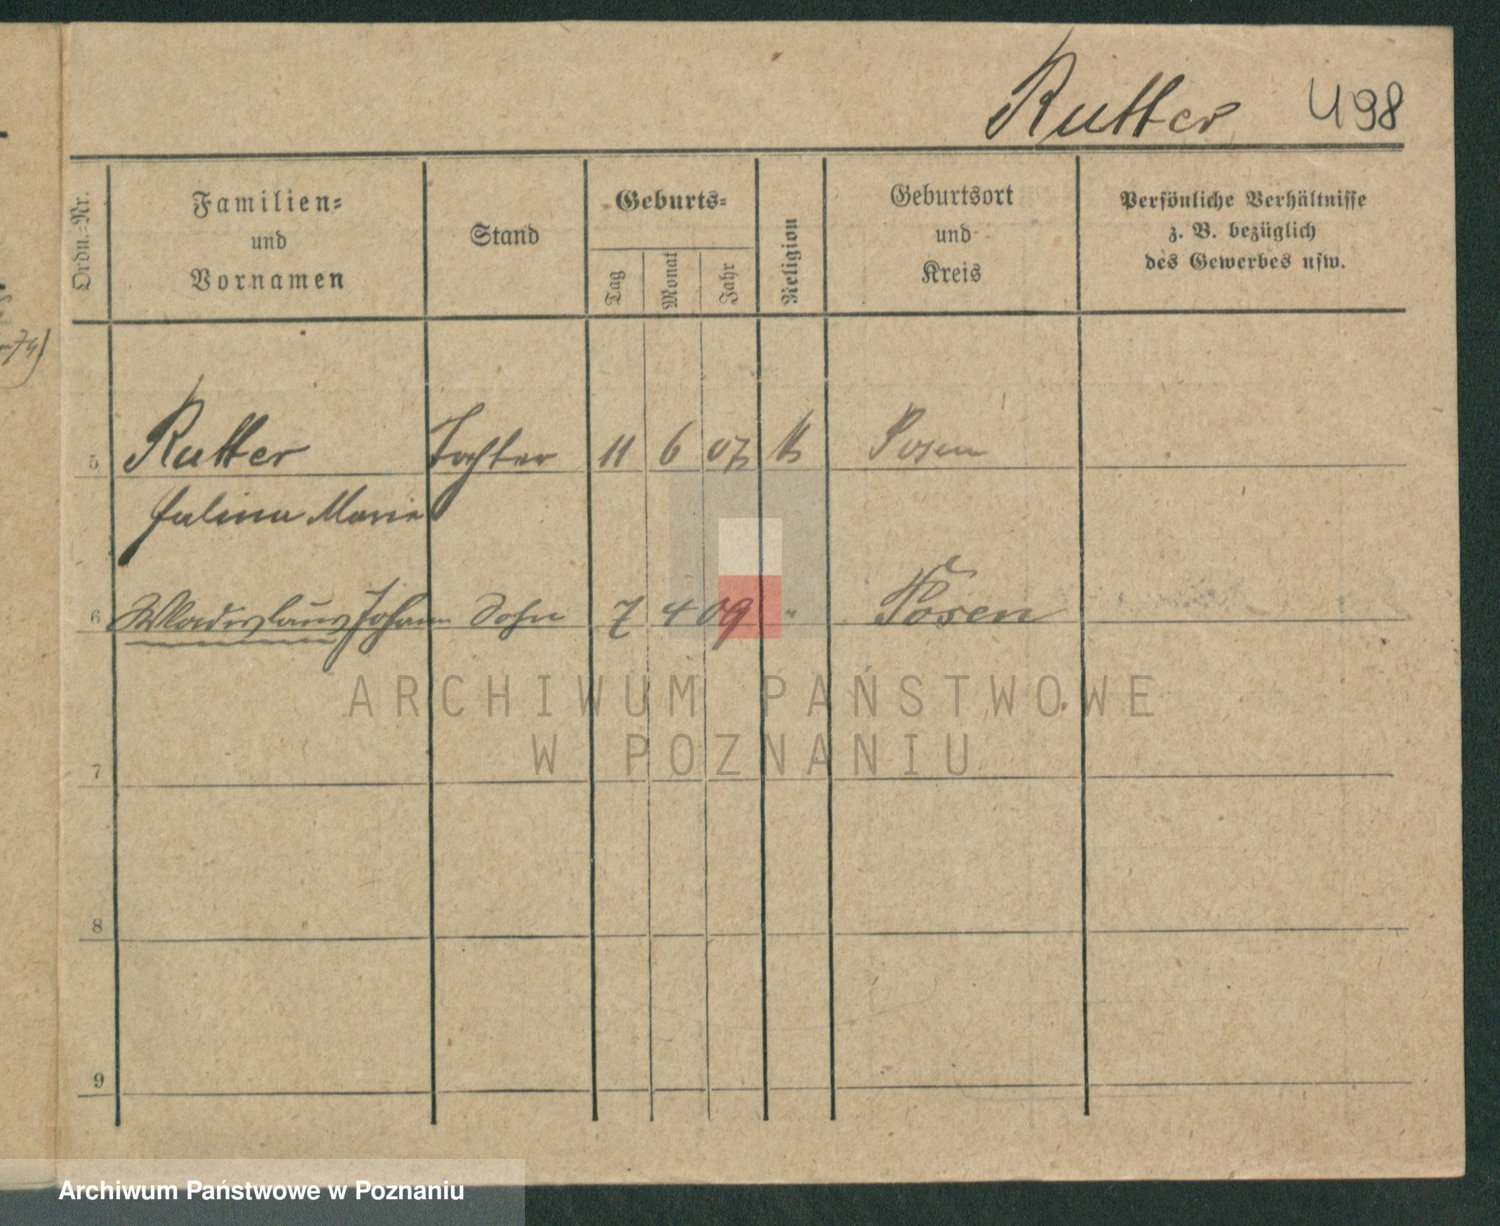 Rutter 498
Ordn.-Nr.
Familien-
und
Vornamen
Stand
Geburts-
Tag
Monat
Jahr
Religion
Geburtsort
und
Kreis
Persönliche Verhältnisse
z. B. bezüglich
des Gewerbes usw.
5 Rutter Tochter 11 6 07 k Posen
Halina Marie
6 Wladislaus Johann Sohn 7 4 09 " Posen
ARCHIWUM PAŃSTWOWE
W POZNANIU
7
8
9
Archiwum Państwowe w Poznaniu